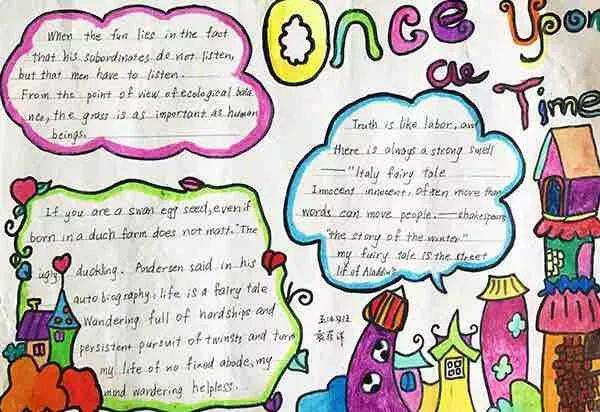 Once Upon
a Time
When the fun lies in the fact
that his subordinates do not listen,
but that men have to listen.
From the point of view of ecological bala
nce, the grass is as important as human
beings.
Truth is like labor, an
there is always a strong smell
—"Italy fairy tale
Innocent innocent, often more than
words can move people. — shakespeare
"the story of the winter"
my fairy tale is the street
lif of Aladdin"
If you are a swan egg seed, even if
born in a duch farm does not matt. "The
ugly duckling. Andersen said in his
autobiography, life is a fairy tale
Wandering full of hardships and
persistent pursuit of twinsty and turn
my life of no fixed abode, my
mind wandering helpless.